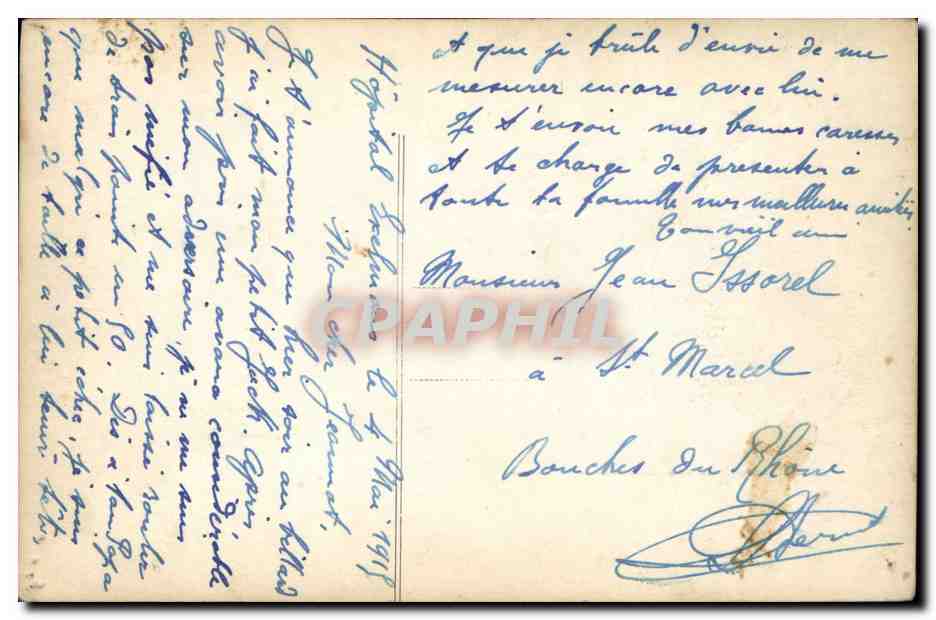 Hôpital le 4 Mai 1918
Mon cher Jeannot,
Je t'annonce qu'hier soir au billard
j'ai fait mon petit Jack. Après
avoir pris une avance considérable
sur mon adversaire, je ne me suis
pas méfié et me suis laissé sortir
de trois points en 50. Dis à tonton
que malgré ce petit échec, je suis
encore de taille à lui tenir tête,
et que je brûle d'envie de me
mesurer encore avec lui.
Je t'envoie mes bonnes caresses
et te charge de presenter à
toute ta famille mes meilleures amitiés
Ton vieil ami
Monsieur Jean Issorel
à St Marcel
Bouches du Rhône
CPAPHIL